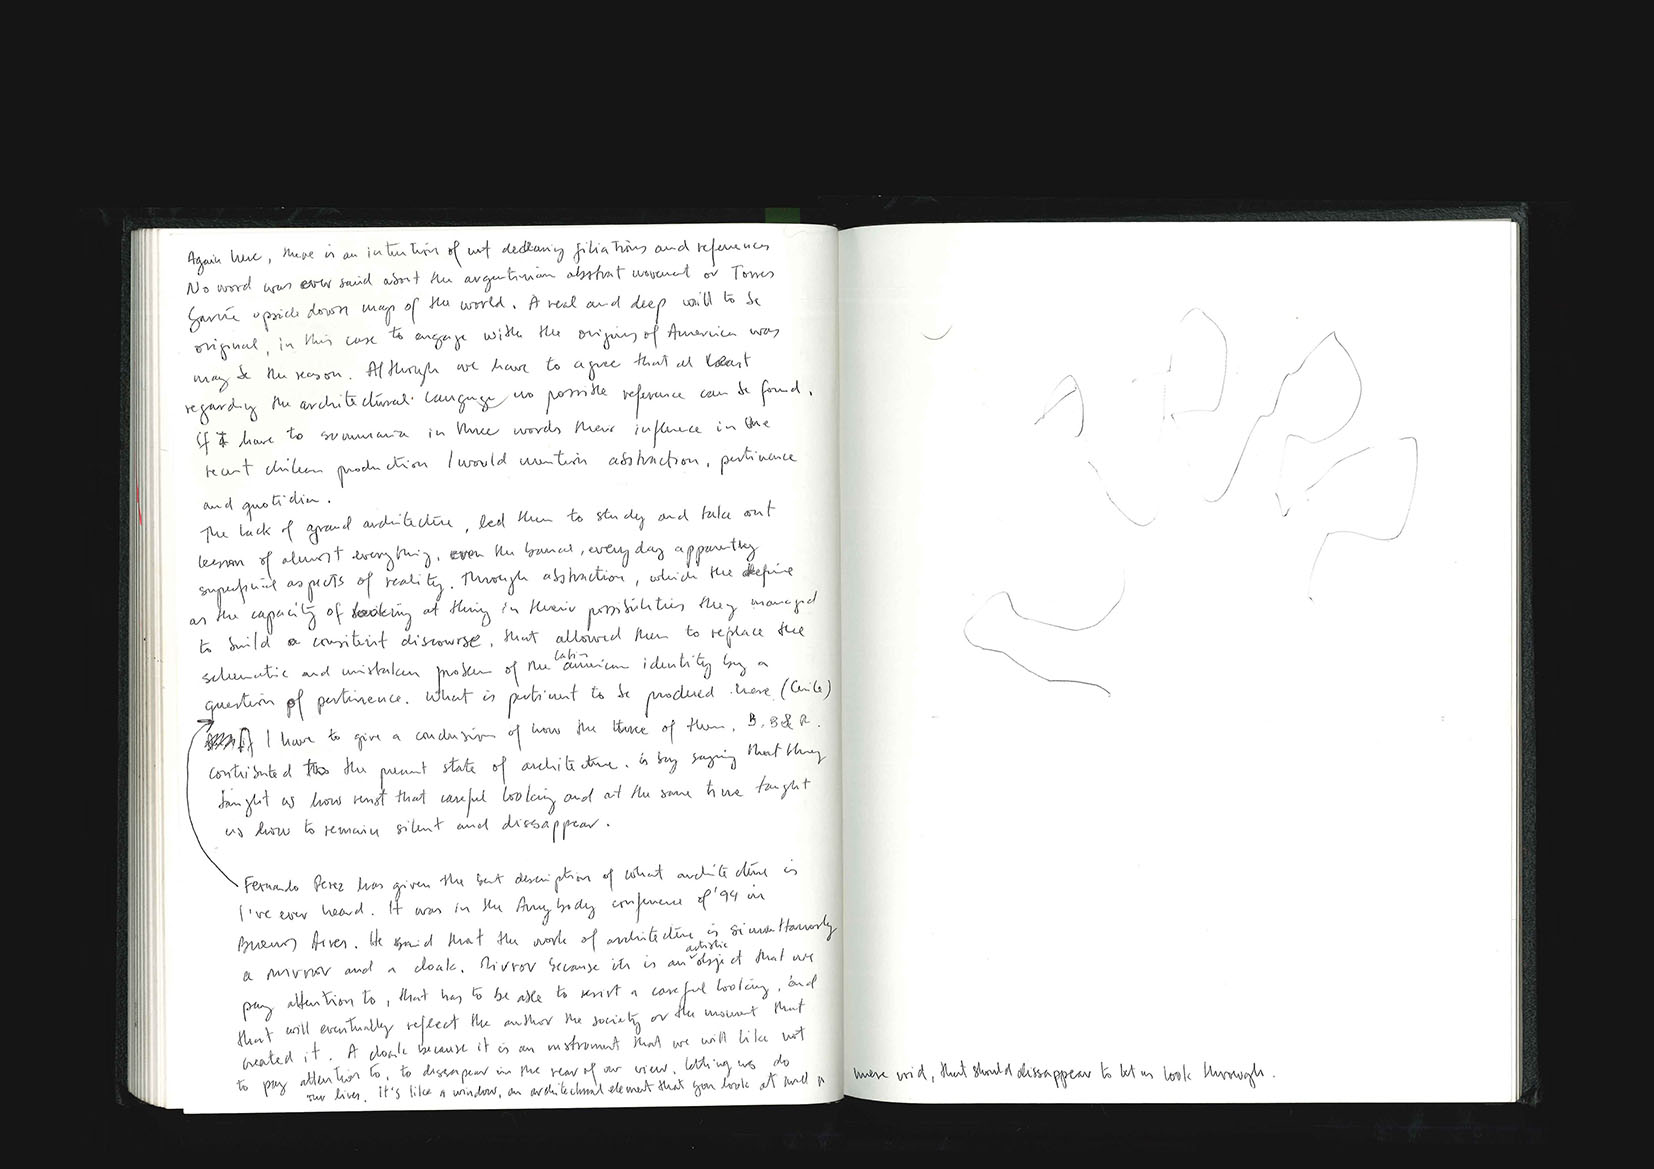 Again here, there is an intention of not declaring filiations and references
No word was ever said about the argentinian abstrat movement or Torres
García upside down map of the world. A real and deep will to be
original, in this case to engage with the origins of America was
may be the reason. Although we have to agree that at least
regarding the architectural language no possible reference can be found.
If I have to summarize in three words their influence in the
recent chilean production I would mention abstraction, pertinence
and quotidian.
The lack of grand architecture, led them to study and take out
lesson of almost everything, even the banal, everyday apparently
superficial aspects of reality. Through abstraction, which the define
as the capacity of looking at thing in their possibilities they managed
to build a consistent discourse, that allowed them to replace the
schematic and mistaken problem of the latin american identity by a
question of pertinence. What is pertinent to be produced here (Chile)
If I have to give a conclusion of how the three of them, B, B & R.
contributed to the present state of architecture. is by saying that they
taught us how resist that careful looking and at the same time taught
us how to remain silent and dissappear.
Fernando Perez has given the best description of what architecture is
I've ever heard. It was in the Anybody conference of '94 in
Buenos Aires. He said that the work of architecture is simultaneously
a mirror and a cloak. Mirror because its is an artistic object that we
pay attention to, that has to be able to resist a careful looking, and
that will eventually reflect the author the society or the moment that
created it. A cloak because it is an instrument that we will like not
to pay attention to, to dissapear in the rear of our view, letting us do
our lives. it's like a window, an architectural element that you look at
mere void, that should dissappear to let us look through.